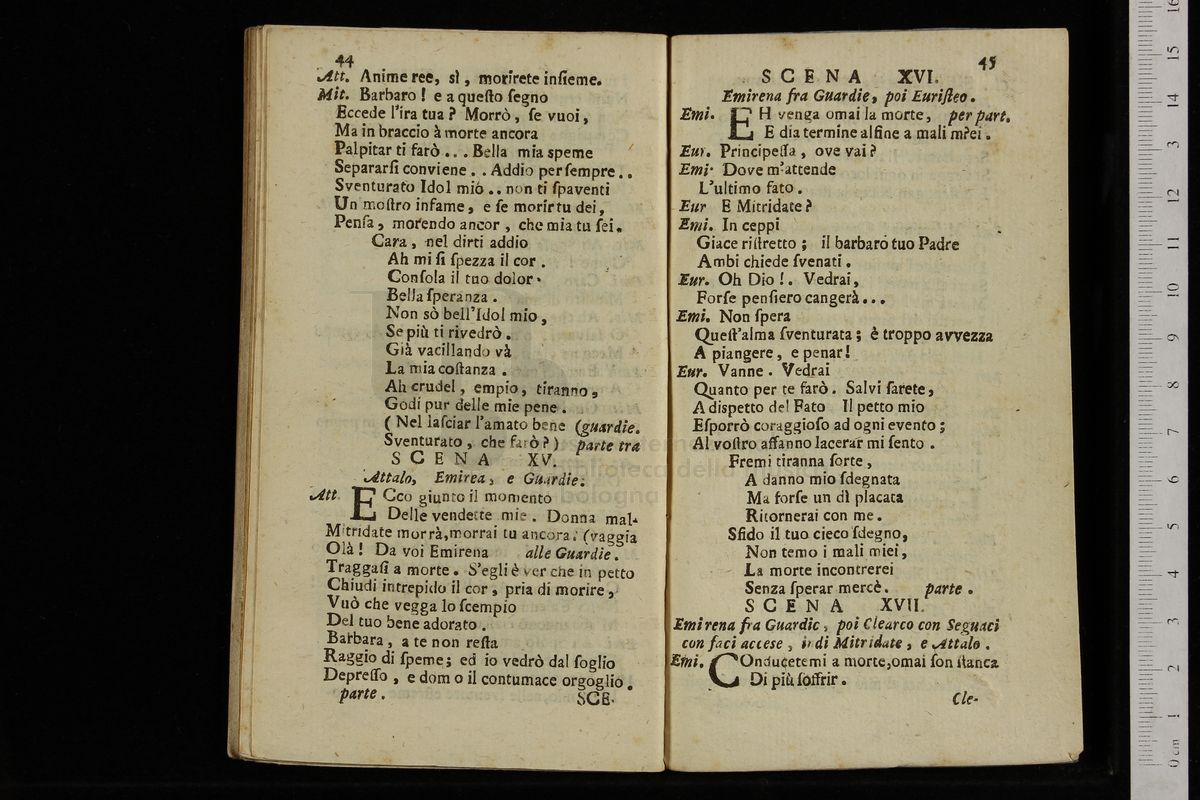 44
Att. Anime ree, sì, morirete inſieme.
Mit. Barbaro! e a queſto ſegno
Eccede l'ira tua? Morrò, ſe vuoi,
Ma in braccio à morte ancora
Palpitar ti farò... Bella mia speme
Separarſi conviene.. Addio per ſempre..
Sventurato Idol mio.. non ti ſpaventi
Un moſtro infame, e ſe morir tu dei,
Penſa, morendo ancor, che mia tu ſei.
Cara, nel dirti addio
Ah mi ſi ſpezza il cor.
Conſola il tuo dolor.
Bella ſperanza.
Non sò bell'Idol mio,
Se più ti rivedrò.
Già vacillando và
La mia coſtanza.
Ah crudel, empio, tiranno,
Godi pur delle mie pene.
(Nel laſciar l'amato bene (guardie.
Sventurato, che farò?) parte tra
SCENA XV.
Attalo, Emirea, e Guardie.
Att. ECco giunto il momento
Delle vendette mie. Donna mal-
Mitridate morrà, morrai tu ancora. (vaggia
Olà! Da voi Emirena alle Guardie.
Traggaſi a morte. S'egli è ver che in petto
Chiudi intrepido il cor, pria di morire,
Vuò che vegga lo ſcempio
Del tuo bene adorato.
Barbara, a te non reſta
Raggio di ſpeme; ed io vedrò dal ſoglio
Depreſſo, e dom o il contumace orgoglio.
parte. SCE-
45
SCENA XVI.
Emirena fra Guardie, poi Euriſteo.
Emi. EH venga omai la morte, per part.
E dia termine alfine a mali miei.
Eur. Principeſſa, ove vai?
Emi. Dove m'attende
L'ultimo fato.
Eur E Mitridate?
Emi. In ceppi
Giace riſtretto; il barbaro tuo Padre
Ambi chiede ſvenati.
Eur. Oh Dio!. Vedrai,
Forſe penſiero cangerà...
Emi. Non ſpera
Queſt'alma ſventurata; è troppo avvezza
A piangere, e penar!
Eur. Vanne. Vedrai
Quanto per te farò. Salvi ſarete,
A diſpetto del Fato Il petto mio
Eſporrò coraggioſo ad ogni evento;
Al voſtro affanno lacerar mi ſento.
Fremi tiranna ſorte,
A danno mio ſdegnata
Ma forſe un dì placata
Ritornerai con me.
Sfido il tuo cieco ſdegno,
Non temo i mali miei,
La morte incontrerei
Senza ſperar mercè. parte.
SCENA XVII.
Emirena fra Guardie, poi Clearco con Seguaci
con faci acceſe, indi Mitridate, e Attalo.
Emi. COnducetemi a morte, omai ſon ſtanca
Di più ſoffrir.
Cle-